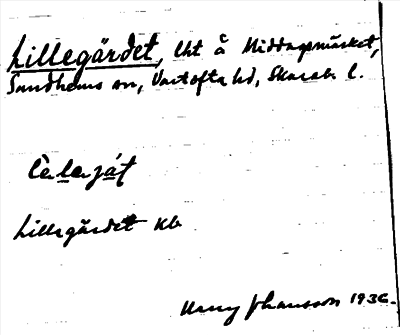 Lillegärdet, Uht å Middagsmarket,
Sandhems sn, Vartofta hd, Skarab. l.
Lillegärdet Kb
Harry Johansson 1936.